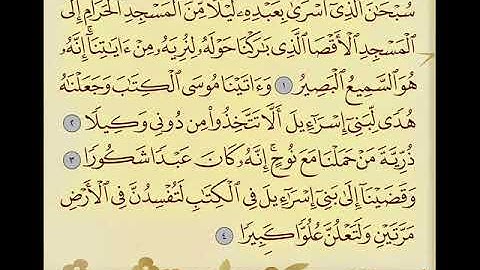 سُبۡحَٰنَ ٱلَّذِيٓ أَسۡرَىٰ بِعَبۡدِهِۦ لَيۡلٗا مِّنَ ٱلۡمَسۡجِدِ ٱلۡحَرَامِ إِلَى
ٱلۡمَسۡجِدِ ٱلۡأَقۡصَا ٱلَّذِي بَٰرَكۡنَا حَوۡلَهُۥ لِنُرِيَهُۥ مِنۡ ءَايَٰتِنَآۚ إِنَّهُۥ
هُوَ ٱلسَّمِيعُ ٱلۡبَصِيرُ ١ وَءَاتَيۡنَا مُوسَى ٱلۡكِتَٰبَ وَجَعَلۡنَٰهُ
هُدٗى لِّبَنِيٓ إِسۡرَٰٓءِيلَ أَلَّا تَتَّخِذُواْ مِن دُونِي وَكِيلٗا ٢
ذُرِّيَّةَ مَنۡ حَمَلۡنَا مَعَ نُوحٍۚ إِنَّهُۥ كَانَ عَبۡدٗا شَكُورٗا ٣
وَقَضَيۡنَآ إِلَىٰ بَنِيٓ إِسۡرَٰٓءِيلَ فِي ٱلۡكِتَٰبِ لَتُفۡسِدُنَّ فِي ٱلۡأَرۡضِ
مَرَّتَيۡنِ وَلَتَعۡلُنَّ عُلُوّٗا كَبِيرٗا ٤